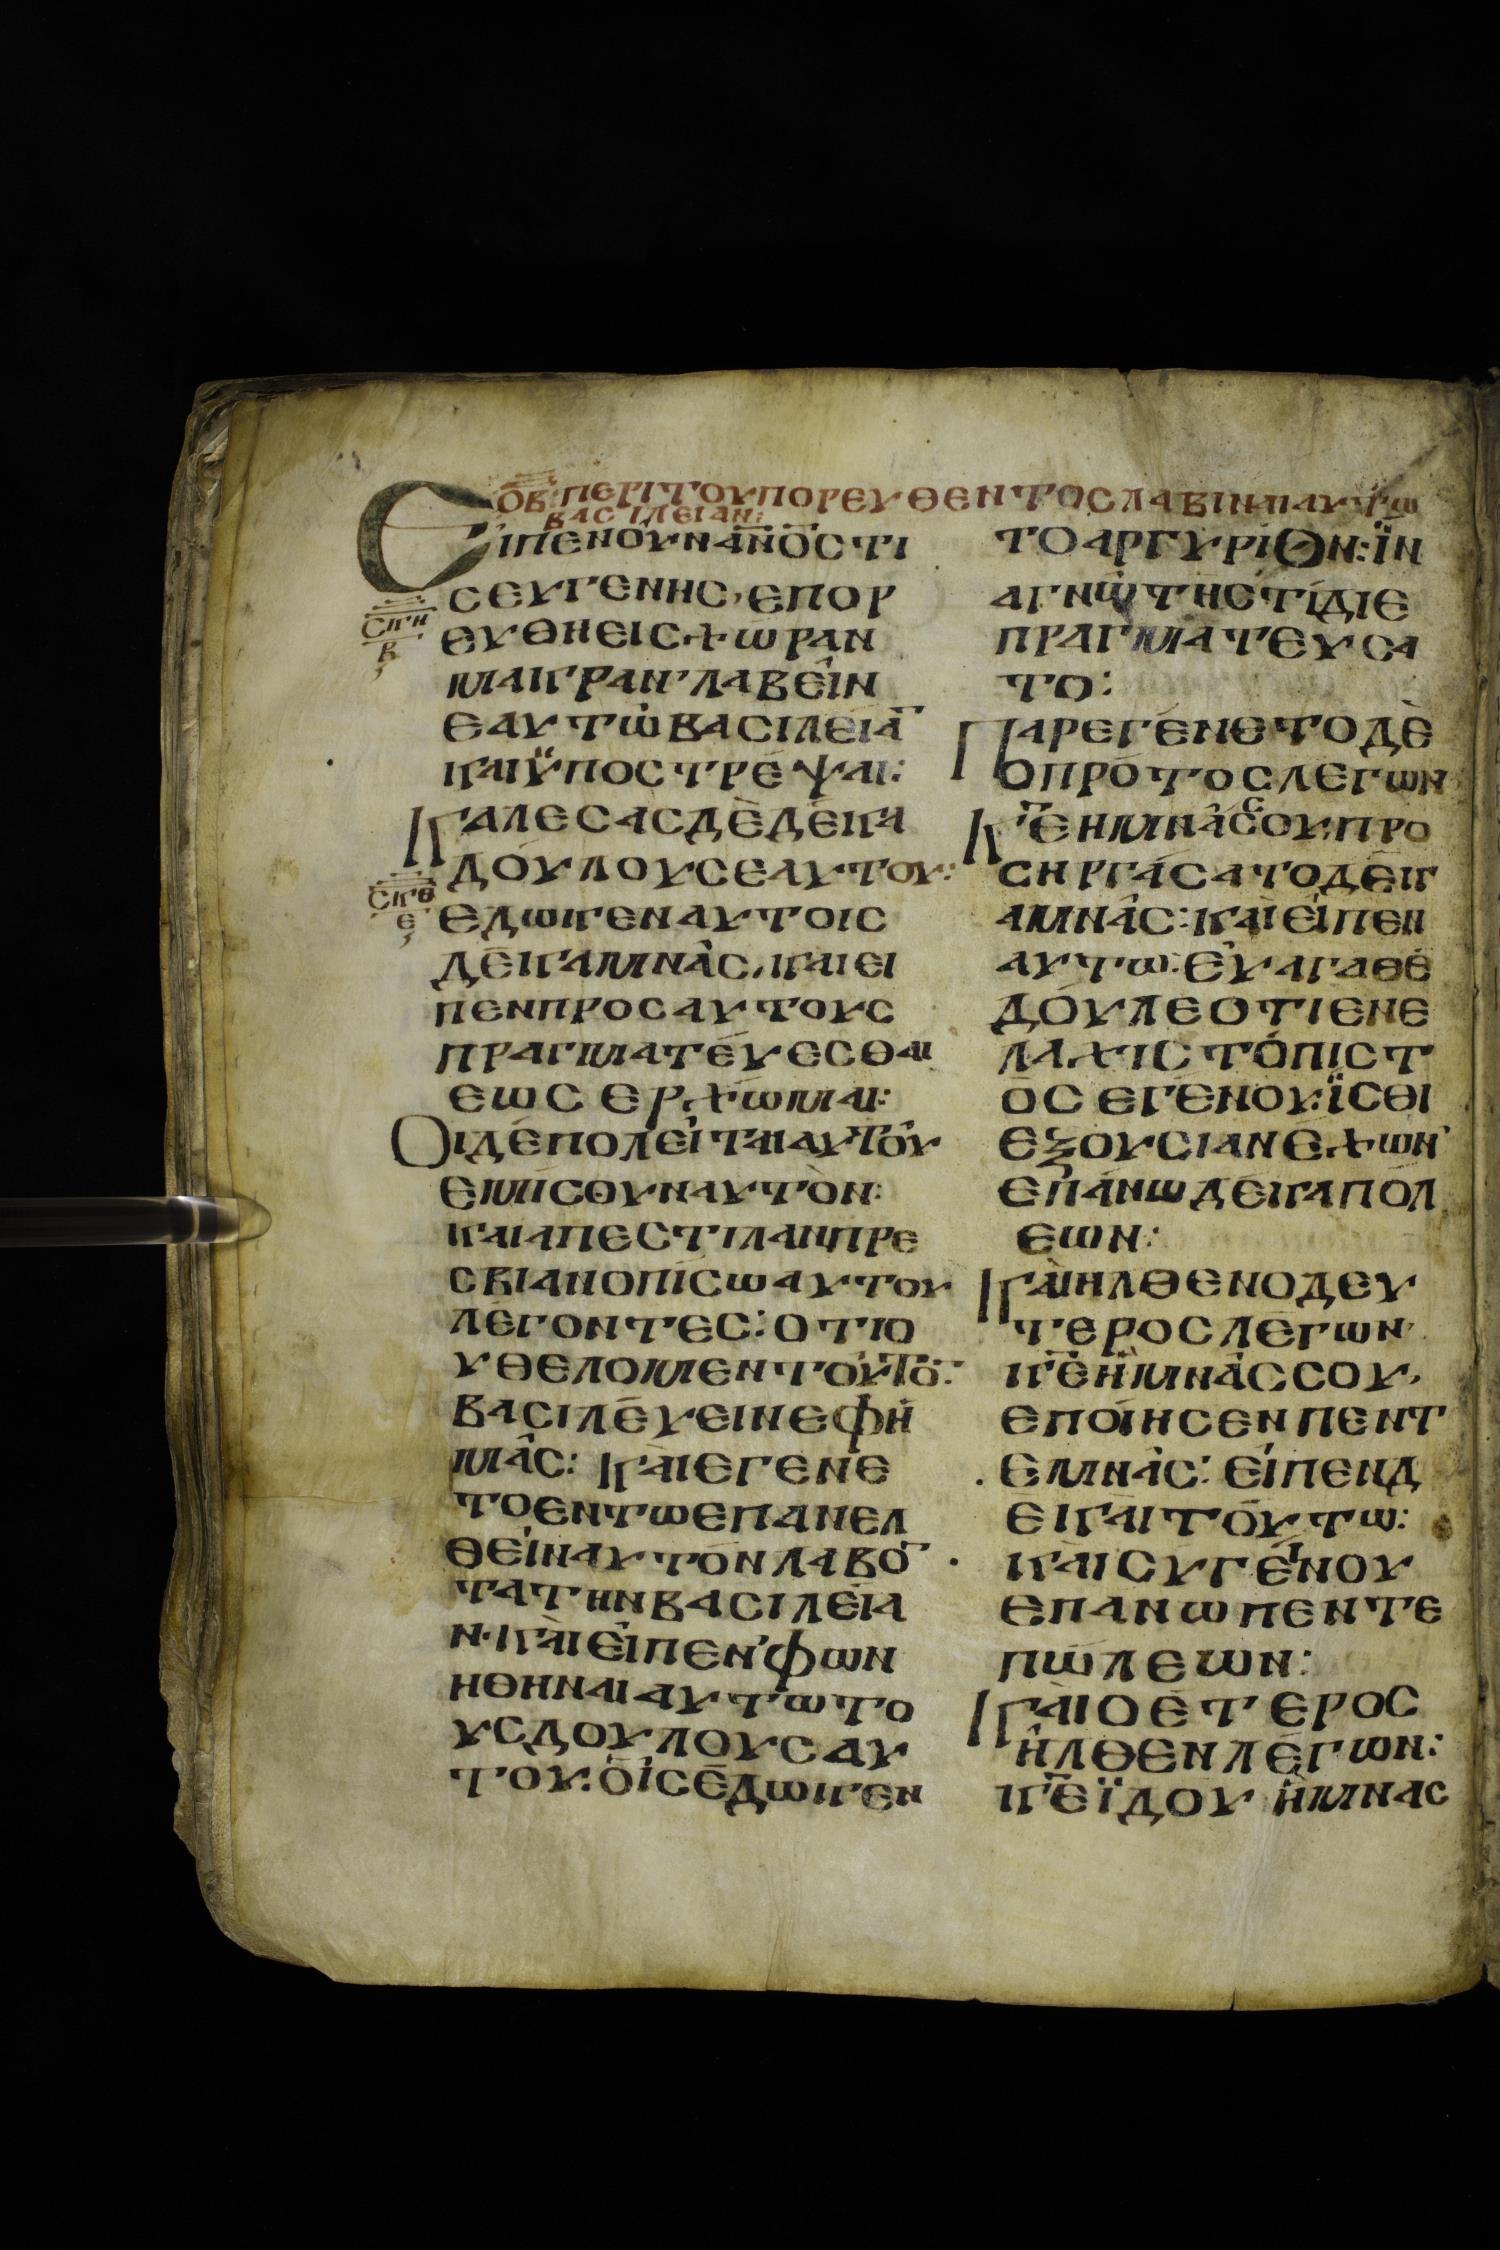 ΟΒ: ΠΕΡΙ ΤΟΥ ΠΟΡΕΥΘΕΝΤΟΣ ΛΑΒΙΝ
ΒΑΣΙΛΕΙΑΝ:
ΕΙΠΕΝ ΟΥΝ ΑΝΟΣ ΤΙ
Σ ΕΥΓΕΝΗΣ, ΕΠΟΡ
ΣΚΗ
Β
ΕΥΘΗ ΕΙΣ ΧΩΡΑΝ
ΜΑΚΡΑΝ ΛΑΒΕΙΝ
ΕΑΥΤΩ ΒΑΣΙΛΕΙΑ̅
ΚΑΙ ΫΠΟΣΤΡΕΨΑΙ:
ΚΑΛΕΣΑΣ ΔΕ ΔΕΚΑ
ΔΟΥΛΟΥΣ ΕΑΥΤΟΥ:
ΣΚΘ
Ε
ΕΔΩΚΕΝ ΑΥΤΟΙΣ
ΔΕΚΑ ΜΝΑΣ, ΚΑΙ ΕΙ
ΠΕΝ ΠΡΟΣ ΑΥΤΟΥΣ
ΠΡΑΓΜΑΤΕΥΕΣΘΑΙ
ΕΩΣ ΕΡΧΩΜΑΙ:
ΟΙ ΔΕ ΠΟΛΕΙΤΑΙ ΑΥΤΟΥ
ΕΜΙΣΘΥΝ ΑΥΤΟΝ:
ΚΑΙ ΑΠΕΣΤΙΛΑΝ ΠΡΕ
ΣΒΙΑΝ ΟΠΙΣΩ ΑΥΤΟΥ
ΛΕΓΟΝΤΕΣ: ΟΤΙ Ο
Υ ΘΕΛΟΜΕΝ ΤΟΥΤΟ̅:
ΒΑΣΙΛΕΥΕΙΝ ΕΦ Η
ΜΑΣ: ΚΑΙ ΕΓΕΝΕ
ΤΟ ΕΝ ΤΩ ΕΠΑΝΕΛ
ΘΕΙΝ ΑΥΤΟΝ ΛΑΒΟ̅
ΤΑ ΤΗΝ ΒΑΣΙΛΕΙΑ
Ν· ΚΑΙ ΕΙΠΕΝ ΦΩΝ
ΗΘΗΝΑΙ ΑΥΤΩ ΤΟ
ΥΣ ΔΟΥΛΟΥΣ ΑΥ
ΤΟΥ: ΟΙΣ ΕΔΩΚΕΝ
ΤΟ ΑΡΓΥΡΙΟΝ: ΪΝ
Α ΓΝΩ ΤΗΣ ΤΙ ΔΙΕ
ΠΡΑΓΜΑΤΕΥΣΑ
ΤΟ:
ΠΑΡΕΓΕΝΕΤΟ ΔΕ
Ο ΠΡΟΤΟΣ ΛΕΓΩΝ
Κ̅Ε Η ΜΝΑΣ ΣΟΥ: ΠΡΟ
ΣΗΡΓΑΣΑΤΟ ΔΕΚ
Α ΜΝΑΣ: ΚΑΙ ΕΙΠΕΝ
ΑΥΤΩ: ΕΥ ΑΓΑΘΕ
ΔΟΥΛΕ ΟΤΙ ΕΝ Ε
ΛΑΧΙΣΤΟ ΠΙΣΤ
ΟΣ ΕΓΕΝΟΥ: ΪΣΘΙ
ΕΞΟΥΣΙΑΝ ΕΧΩΝ
ΕΠΑΝΩ ΔΕΚΑ ΠΟΛ
ΕΩΝ:
ΚΑΙ ΗΛΘΕΝ Ο ΔΕΥ
ΤΕΡΟΣ ΛΕΓΩΝ
Κ̅Ε Η ΜΝΑΣ ΣΟΥ,
ΕΠΟΙΗΣΕΝ ΠΕΝΤ
Ε ΜΝΑΣ: ΕΙΠΕΝ Δ
Ε ΚΑΙ ΤΟΥΤΩ:
ΚΑΙ ΣΥ ΓΕΝΟΥ
ΕΠΑΝΩ ΠΕΝΤΕ
ΠΩΛΕΩΝ:
ΚΑΙ Ο ΕΤΕΡΟΣ
ΗΛΘΕΝ ΛΕΓΩΝ:
Κ̅Ε ΪΔΟΥ Η ΜΝΑΣ